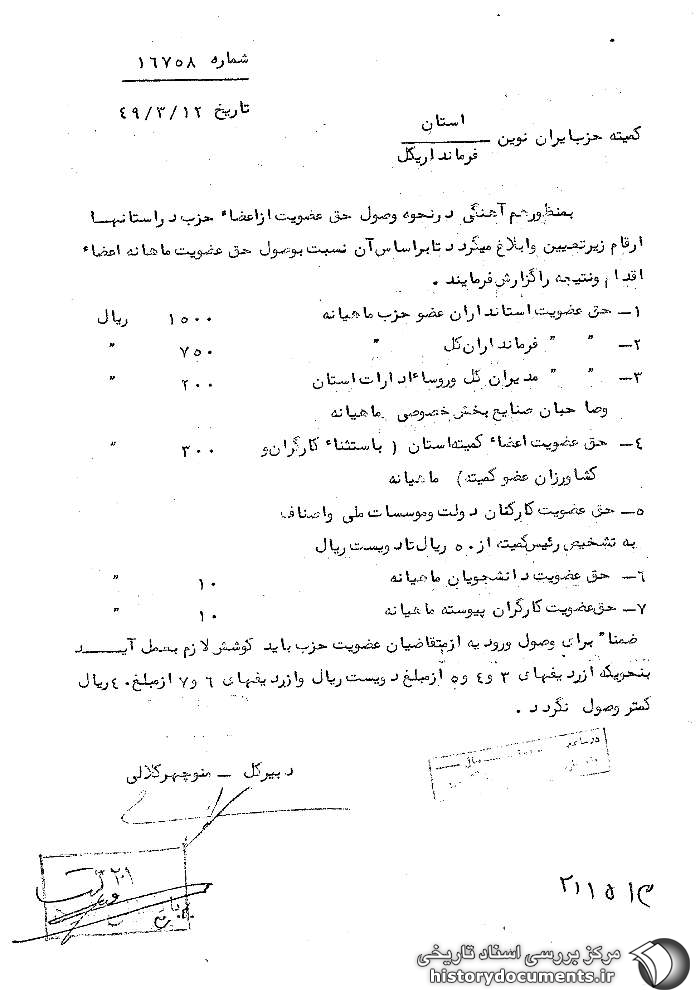 شماره ۱۶۷۵۸
تاریخ ۴۹/۳/۱۲
کمیته حزب ایران نوین استان
فرمانداریکل
بمنظور هم آهنگی در نحوه وصول حق عضویت از اعضاء حزب در استانهـا
ارقام زیر تعیین و ابلاغ میگردد تا براساس آن نسبت بوصول حق عضویت ماهانه اعضاء
اقدام و نتیجه را گزارش فرمایند .
۱ـ حق عضویت استانداران عضو حزب ماهیانه ۱۵۰۰ ریال
۲ـ " " فرمانداران کل " ۷۵۰ "
۳ـ " " مدیران کل وروساءادارات استان ۲۰۰ "
وصاحبان صنایع بخش خصوصی ماهیانه
۴ـ حق عضویت اعضاء کمیته استان ( باستثناء کارگران و ۳۰۰ "
کشاورزان عضو کمیته) ماهیانه
۵ـ حق عضویت کارکنان دولت وموسسات ملی واصناف
به تشخیص رئیس کمیته از ۵۰ ریال تا دویست ریال
۶ـ حق عضویت دانشجویان ماهیانه ۱۰ "
۷ـ حق عضویت کارگران پیوسته ماهیانه ۱۰ "
ضمنا" برای وصول ورودیه از متقاضیان عضویت حزب باید کوشش لازم بعمل آیـــد
بنحویکه از ردیفهای ۳ و ۴ و ۵ از مبلغ دویست ریال و از ردیفهای ۶ و ۷ از مبلغ ۴۰ ریال
کمتر وصول نگردد .
دبیرکل ـ منوچهر کلالی
مرکز بررسی اسناد تاریخی
historydocuments.ir